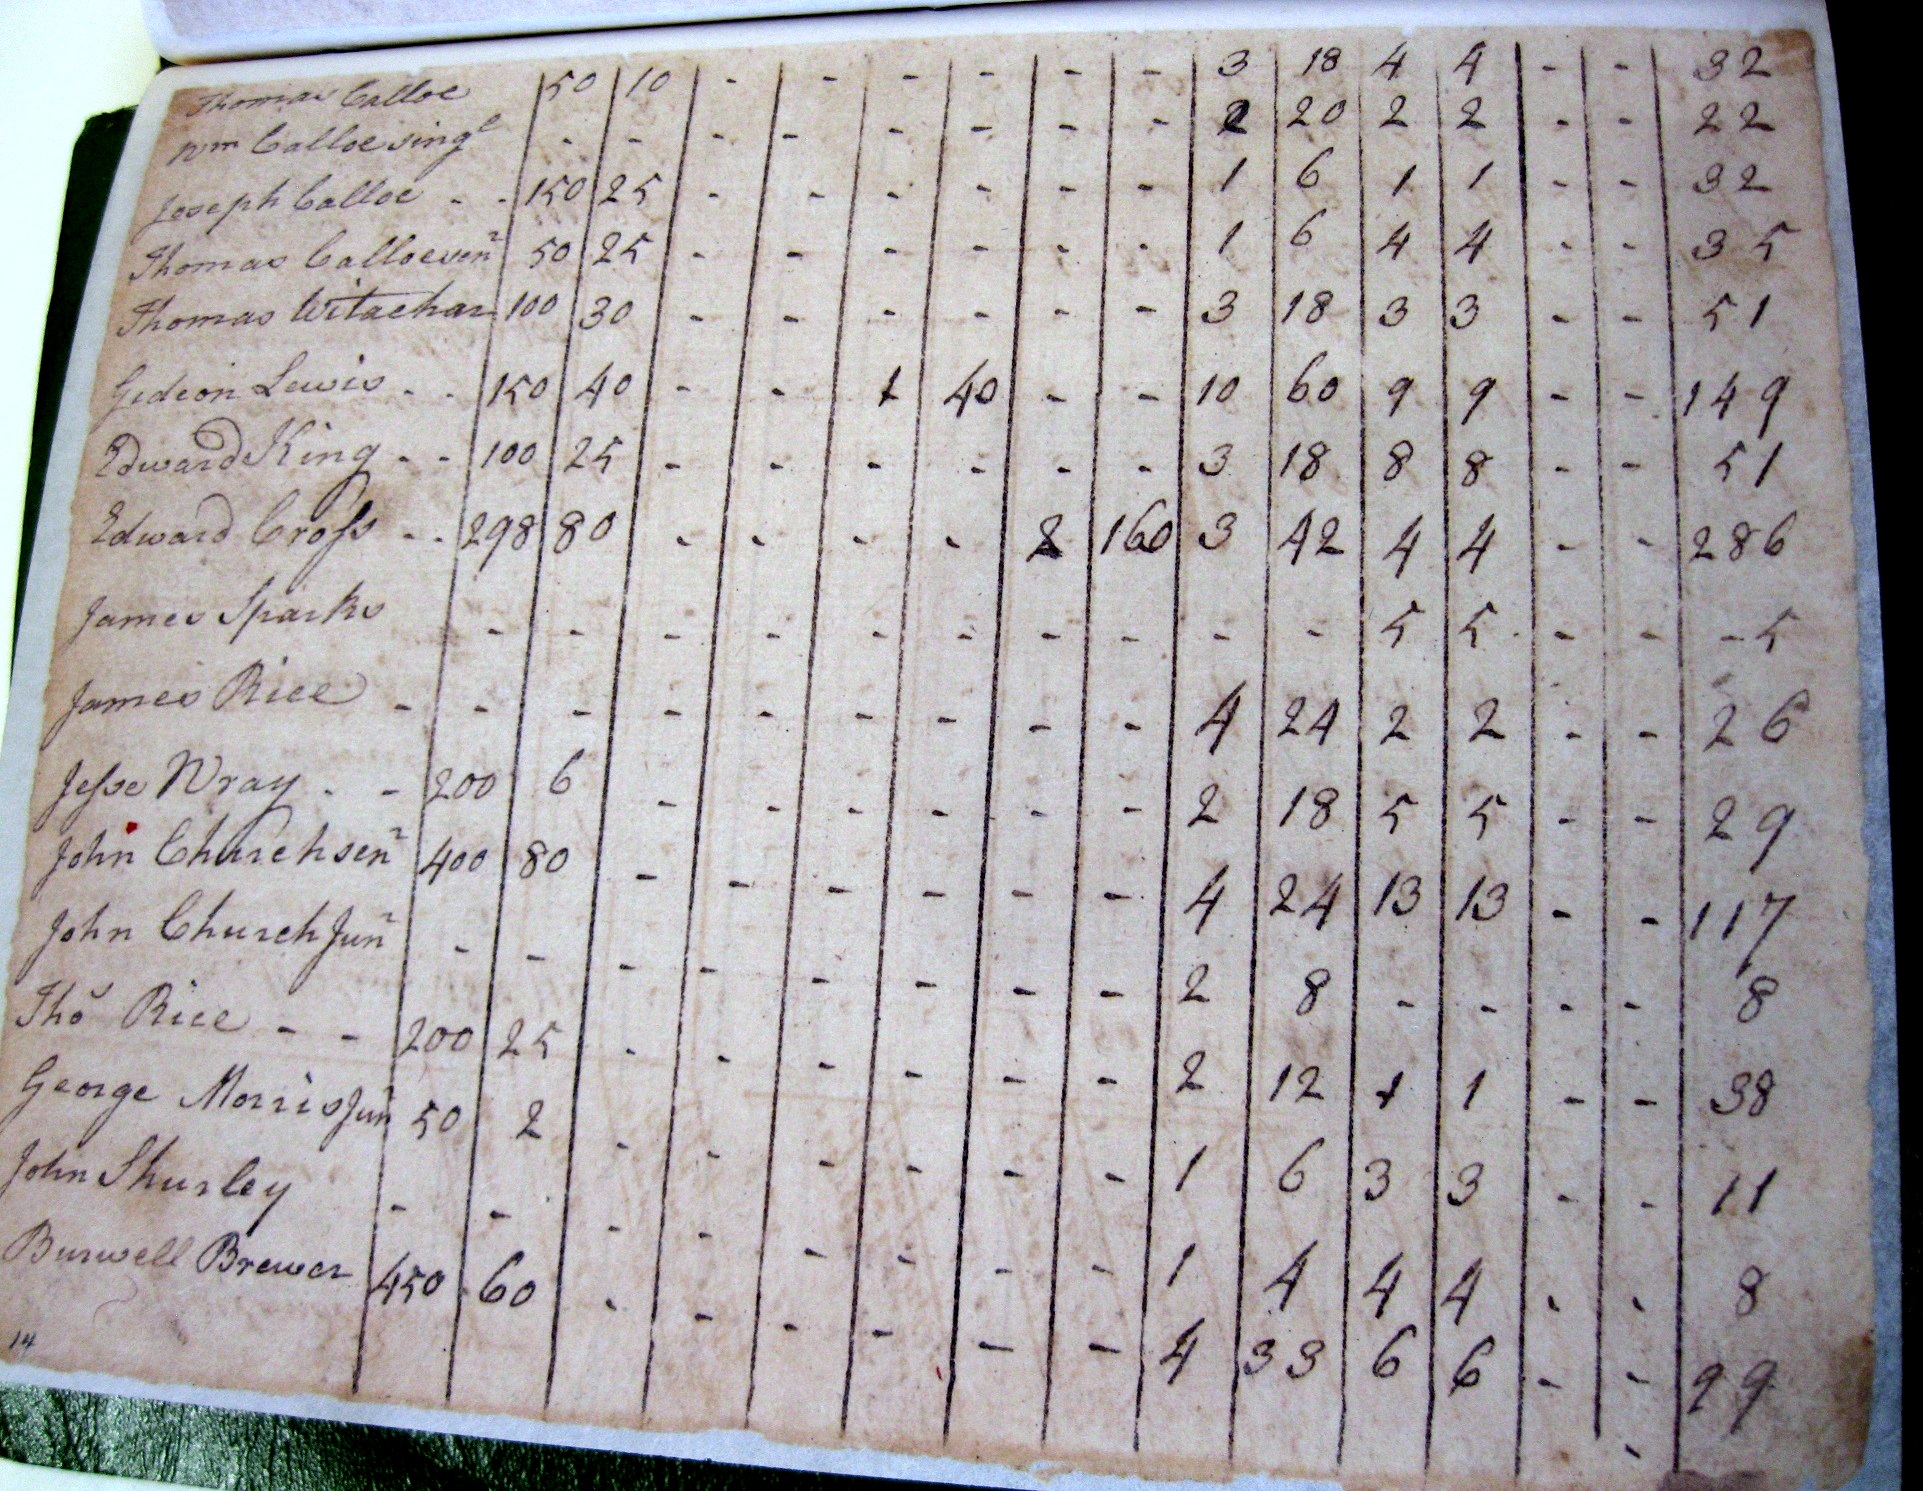 Thomas Calloe 50 10 - - - - - - 3 18 4 4 - - 32
Wm Calloe singl - - - - - - - - 2 20 2 2 - - 22
Joseph Calloe - - 150 25 - - - - - - 1 6 1 1 - - 32
Thomas Calloe senr 50 25 - - - - - - 1 6 4 4 - - 35
Thomas Witachar 100 30 - - - - - - 3 18 3 3 - - 51
Gideon Lewis - - 150 40 - - 1 40 - - 10 60 9 9 - - 149
Edward King - - 100 25 - - - - - - 3 18 8 8 - - 51
Edward Croſs - - 298 80 - - - - 2 160 3 42 4 4 - - 286
James Sparks - - - - - - - - - - 5 5 - - - 5
James Rice - - - - - - - - - 4 24 2 2 - - 26
Jeſse Wray - - 200 6 - - - - - - 2 18 5 5 - - 29
John Church senr 400 80 - - - - - - 4 24 13 13 - - 117
John Church Junr - - - - - - - - 2 8 - - - - 8
Thos Rice - - 200 25 - - - - - - 2 12 1 1 - - 38
George Morris Junr 50 2 - - - - - - 1 6 3 3 - - 11
John Shurley - - - - - - - - 1 4 4 4 - - 8
Burwell Brewer 450 60 - - - - - - 4 33 6 6 - - 99
14